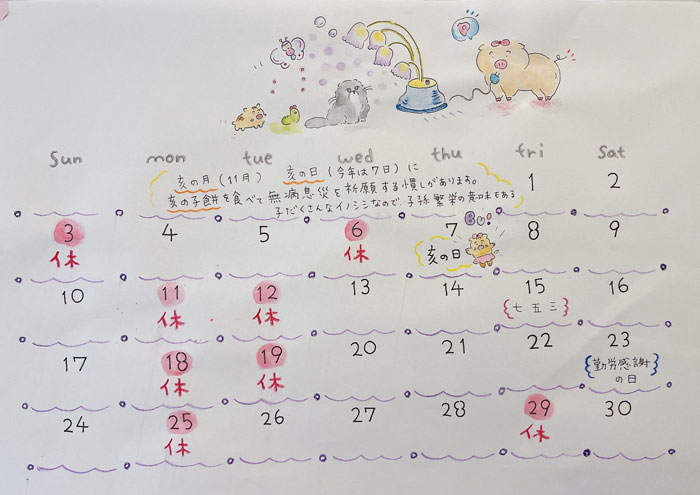 Sun mon tue wed thu fri Sat
亥の月(11月) 亥の日(今年は7日)に
亥の子餅を食べて無病息災を祈願する慣しがあります。
子だくさんなイノシシなので、子孫繁栄の意味もある
1 2
3 4 5 6 7 8 9
休 休
Boo!
亥の日
10 11 12 13 14 15 16
休 休
七五三
17 18 19 20 21 22 23
休 休
勤労感謝
の日
24 25 26 27 28 29 30
休 休